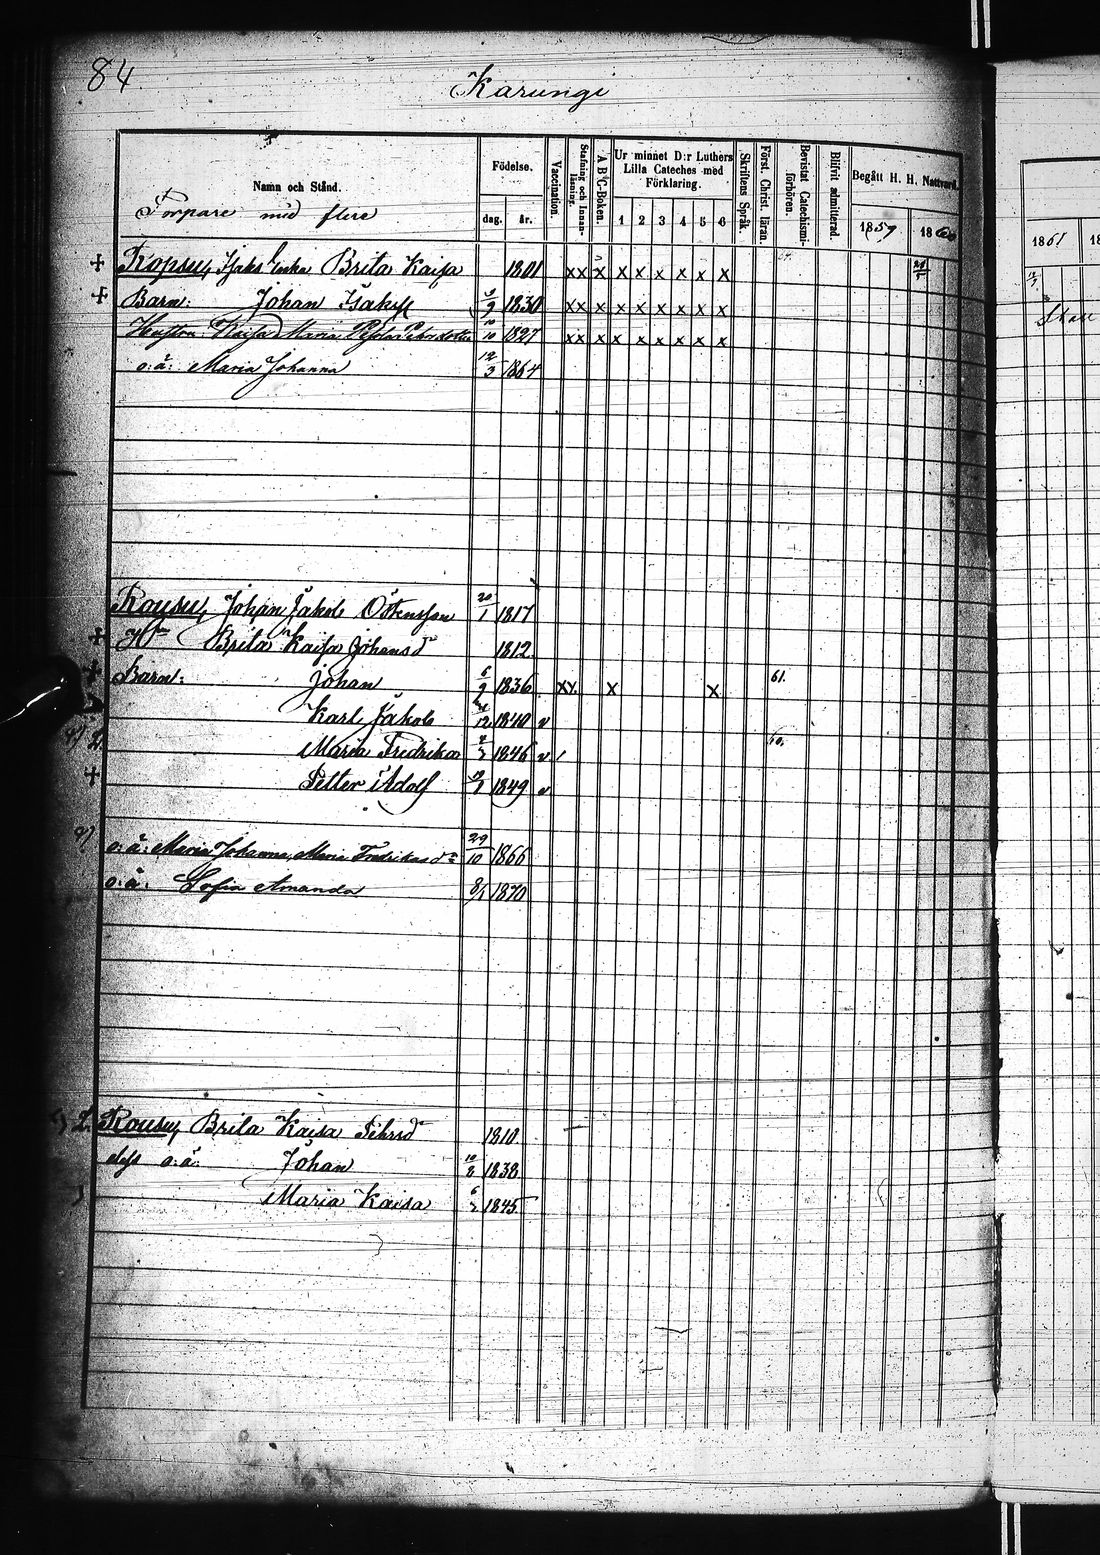 84
Karungi
Namn och Stånd.
Födelse.
Vaccination.
Stafning och Innanläsning.
A B C-Boken.
Ur minnet D:r Luthers Lilla Cateches med Förklaring.
Skriftens Språk.
Först. Christ. läran.
Bevistat Catechismiförhören.
Blifvit admitterad.
Begått H. H. Nattvard.
Torpare med flere
dag. år. 1 2 3 4 5 6 1859 1860
1861
+ Brita Kaisa 1801 x x x x x x x x x
+ Barn: Johan Isaksf 1830 x x x x x x x x x x
Hustrun Kaisa Maria 10/10 1827 x x x x x x x x x x
o: ä: Maria Johanna 12/3 1864
Rousu, Johan Jakob 20/1 1817
+ Brita Kaisa Johansd 1812
+ Barn: Johan 6/9 1836 x x x x 61.
Karl Jakob 1840 v
Maria Fredrika 1846 v 60.
+ Petter Adolf 1849 v
o: ä: Maria Johanna, Maria Fredrikasd 29/10 1866
o: ä: Sofia Amanda 1870
Rousu, Brita Kaisa Pehrsd 1810
dess o: ä: Johan 10/8 1838
Maria Kaisa 1845